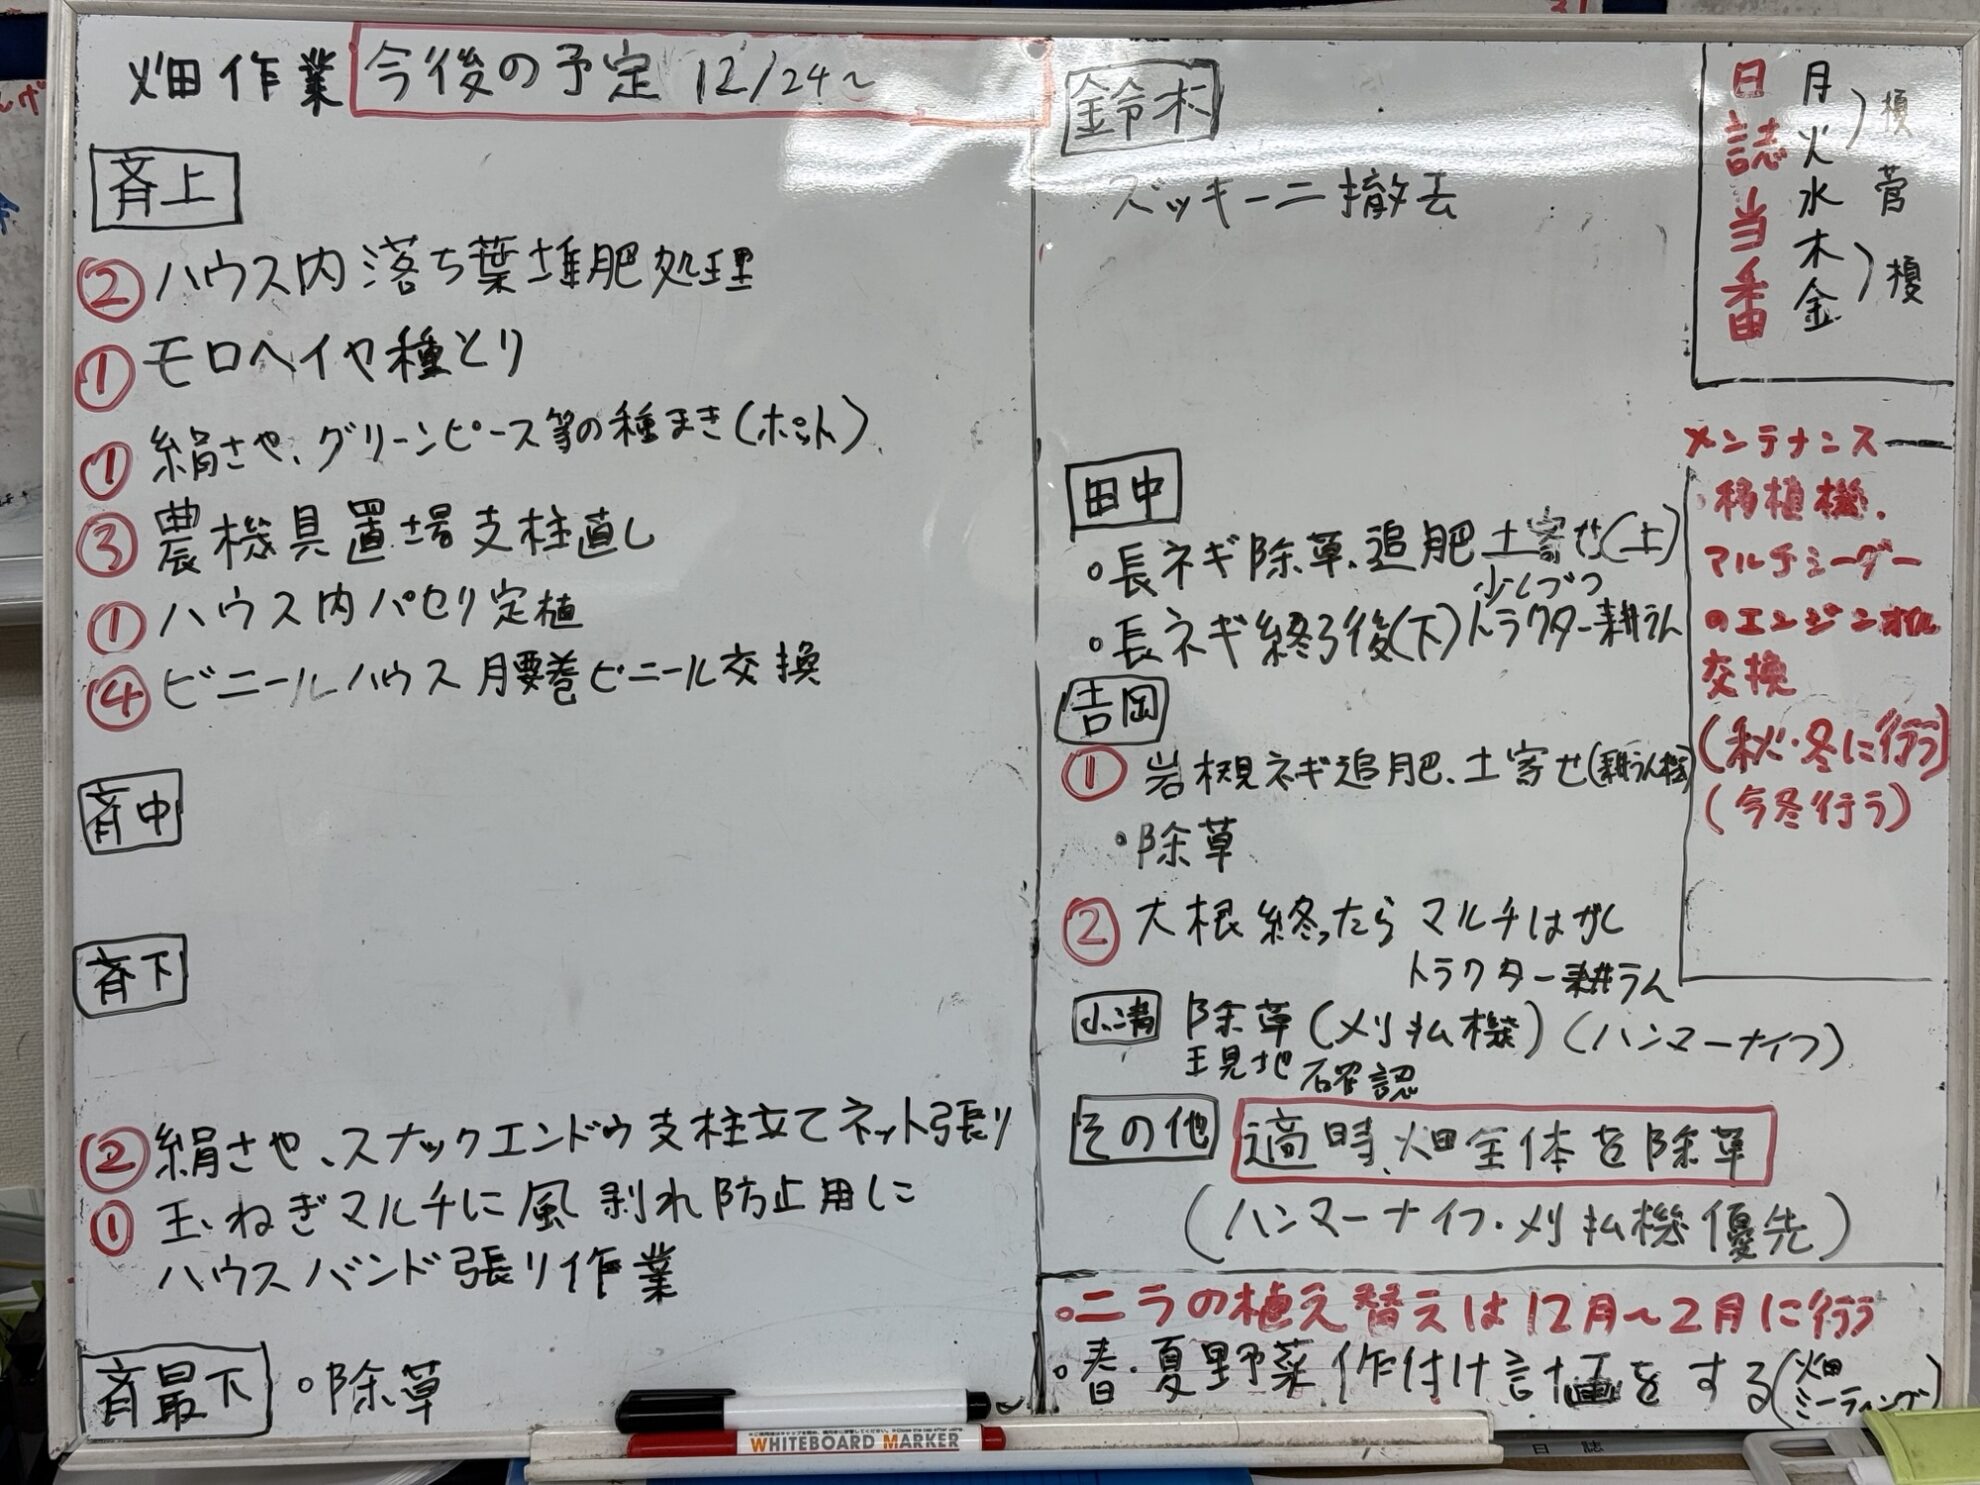 畑作業 今後の予定 12/24~
斉上
② ハウス内 落ち葉堆肥処理
① モロヘイヤ種とり
① 絹さや、グリーンピース等の種まき(ポット)
③ 農機具置場支柱直し
① ハウス内パセリ定植
④ ビニールハウス 腰巻ビニール交換
斉中
斉下
② 絹さや、スナックエンドウ支柱立てネット張り
① 玉ねぎマルチに風剥れ防止用に
ハウスバンド張り作業
斉最下 ○除草
鈴木
ズッキーニ撤去
田中
○長ネギ除草、追肥 土寄せ(上)
少しづつ
○長ネギ終了後(下)トラクター耕うん
吉岡
① 岩槻ネギ追肥、土寄せ(耕うん機)
・除草
② 大根終ったら マルチはがし
トラクター耕うん
小溝 除草(刈払機)(ハンマーナイフ)
現地確認
その他 適時、畑全体を除草
(ハンマーナイフ・刈払機優先)
○ニラの植え替えは12月~2月に行う
○春・夏野菜 作付け計画をする(畑ミーティング)
日誌当番
月
火
水 菅
木
金 榎
メンテナンス
・移植機、
マルチシーダー
のエンジンオイル
交換
(秋・冬に行う)
(今冬行う)
WHITEBOARD MARKER
日誌